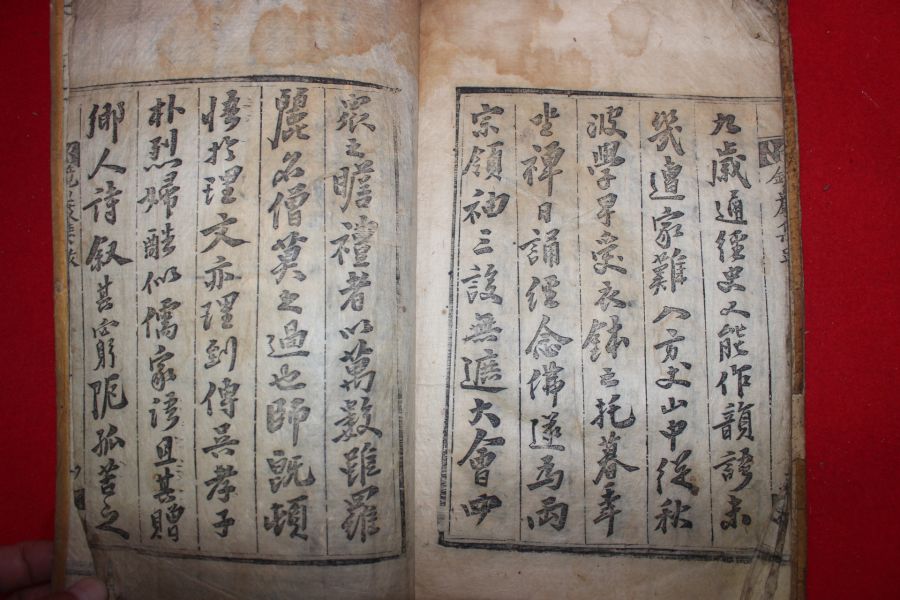 九歲通經史又能作韻語未
幾遭家難入方丈山中從秋
波學早受衣鉢之托暮年
坐禪日誦經念佛遂爲兩
宗領袖三設無遮大會四
衆之瞻禮者以萬數雖羅
麗名僧莫之過也師旣頓
悟於理文亦理到傳吳孝子
朴烈婦酷似儒家語且其贈
鄉人詩叙甚窮阨孤苦之